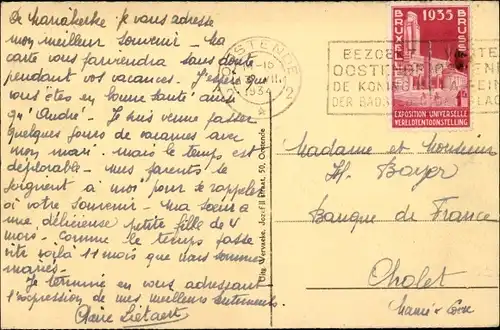 De Mariakerke je vous adresse
mon meilleur souvenir - Ma
carte vous parviendra sans doute
pendant vos vacances. J'espère que
vous êtes en bonne santé ainsi
qu'André. Je suis venue passer
quelques jours de vacances avec
mon mari. mais le temps est
déplorable. mes parents se
joignent à moi pour se rappeler
à votre souvenir - Ma sœur a
une délicieuse petite fille de 4
mois. Comme le temps passe
vite voilà 11 mois que nous sommes
mariés.
Je termine en vous adressant
l'expression de mes meilleurs sentiments.
Claire Liétaert
Uitg. Vervaeke, Jozef II straat, 50, Oostende
OOSTENDE
1934
2 2
BEZOEKT
OOSTENDE
DE KONINGIN
DER BADSTEDEN
1935
BRUXELLES
BRUSSEL
1F
EXPOSITION UNIVERSELLE
WERELDTENTOONSTELLING
Madame et Monsieur
H. Boyer
Banque de France
Cholet
Maine & Loire